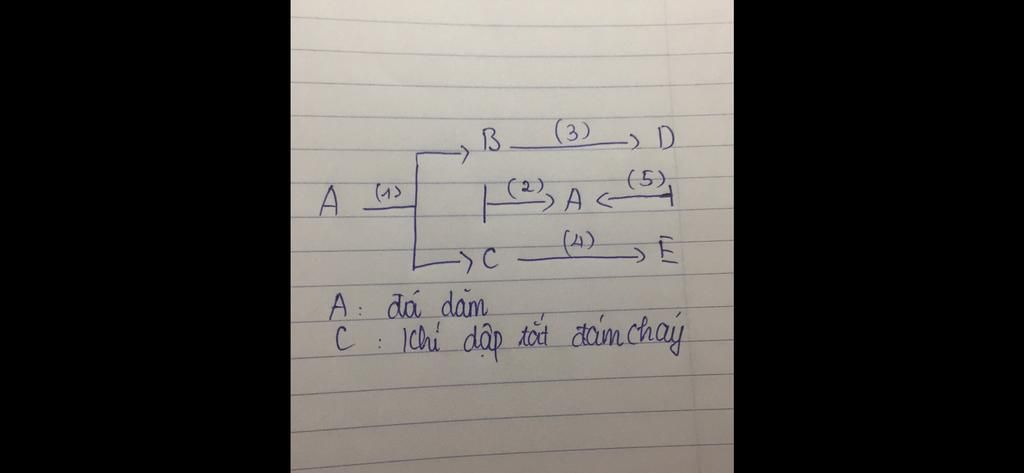 B (3) D
A (1) (2) A (5)
C (4) E
A : đá dăm
C : Khí dập tắt đám cháy